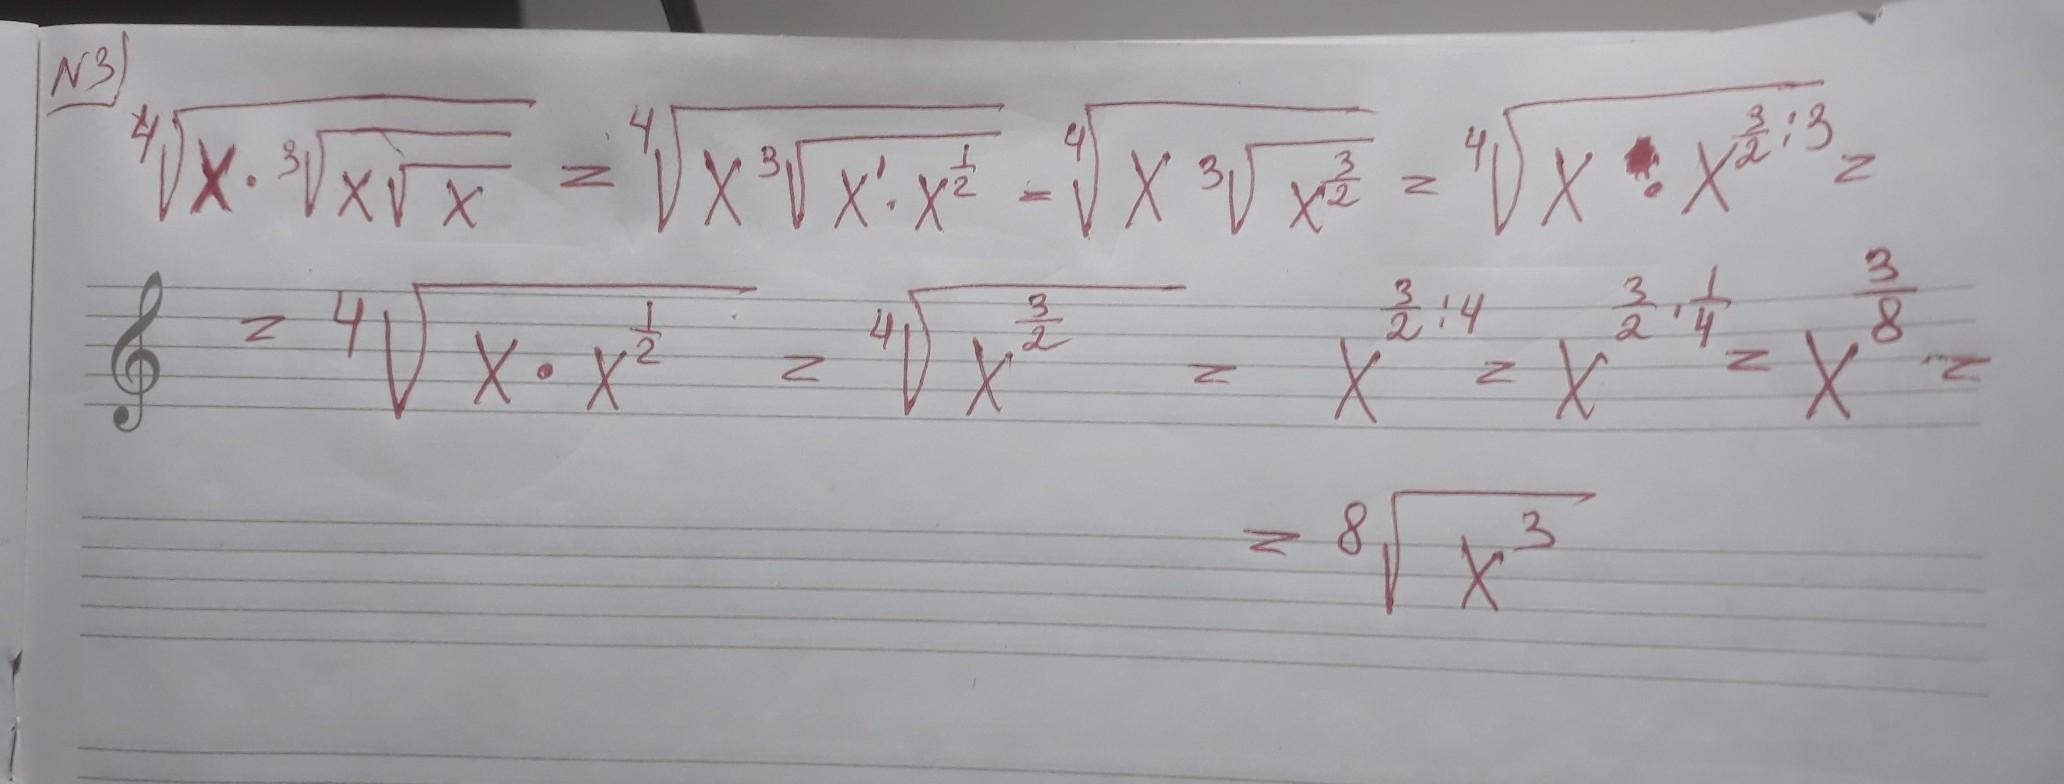 N3)
⁴√(x · ³√(x√x)) = ⁴√(x ³√(x¹ · x^(1/2))) = ⁴√(x ³√(x^(3/2))) = ⁴√(x · x^(3/2 : 3)) =
= ⁴√(x · x^(1/2)) = ⁴√(x^(3/2)) = x^(3/2 : 4) = x^(3/2 · 1/4) = x^(3/8) =
= ⁸√(x³)